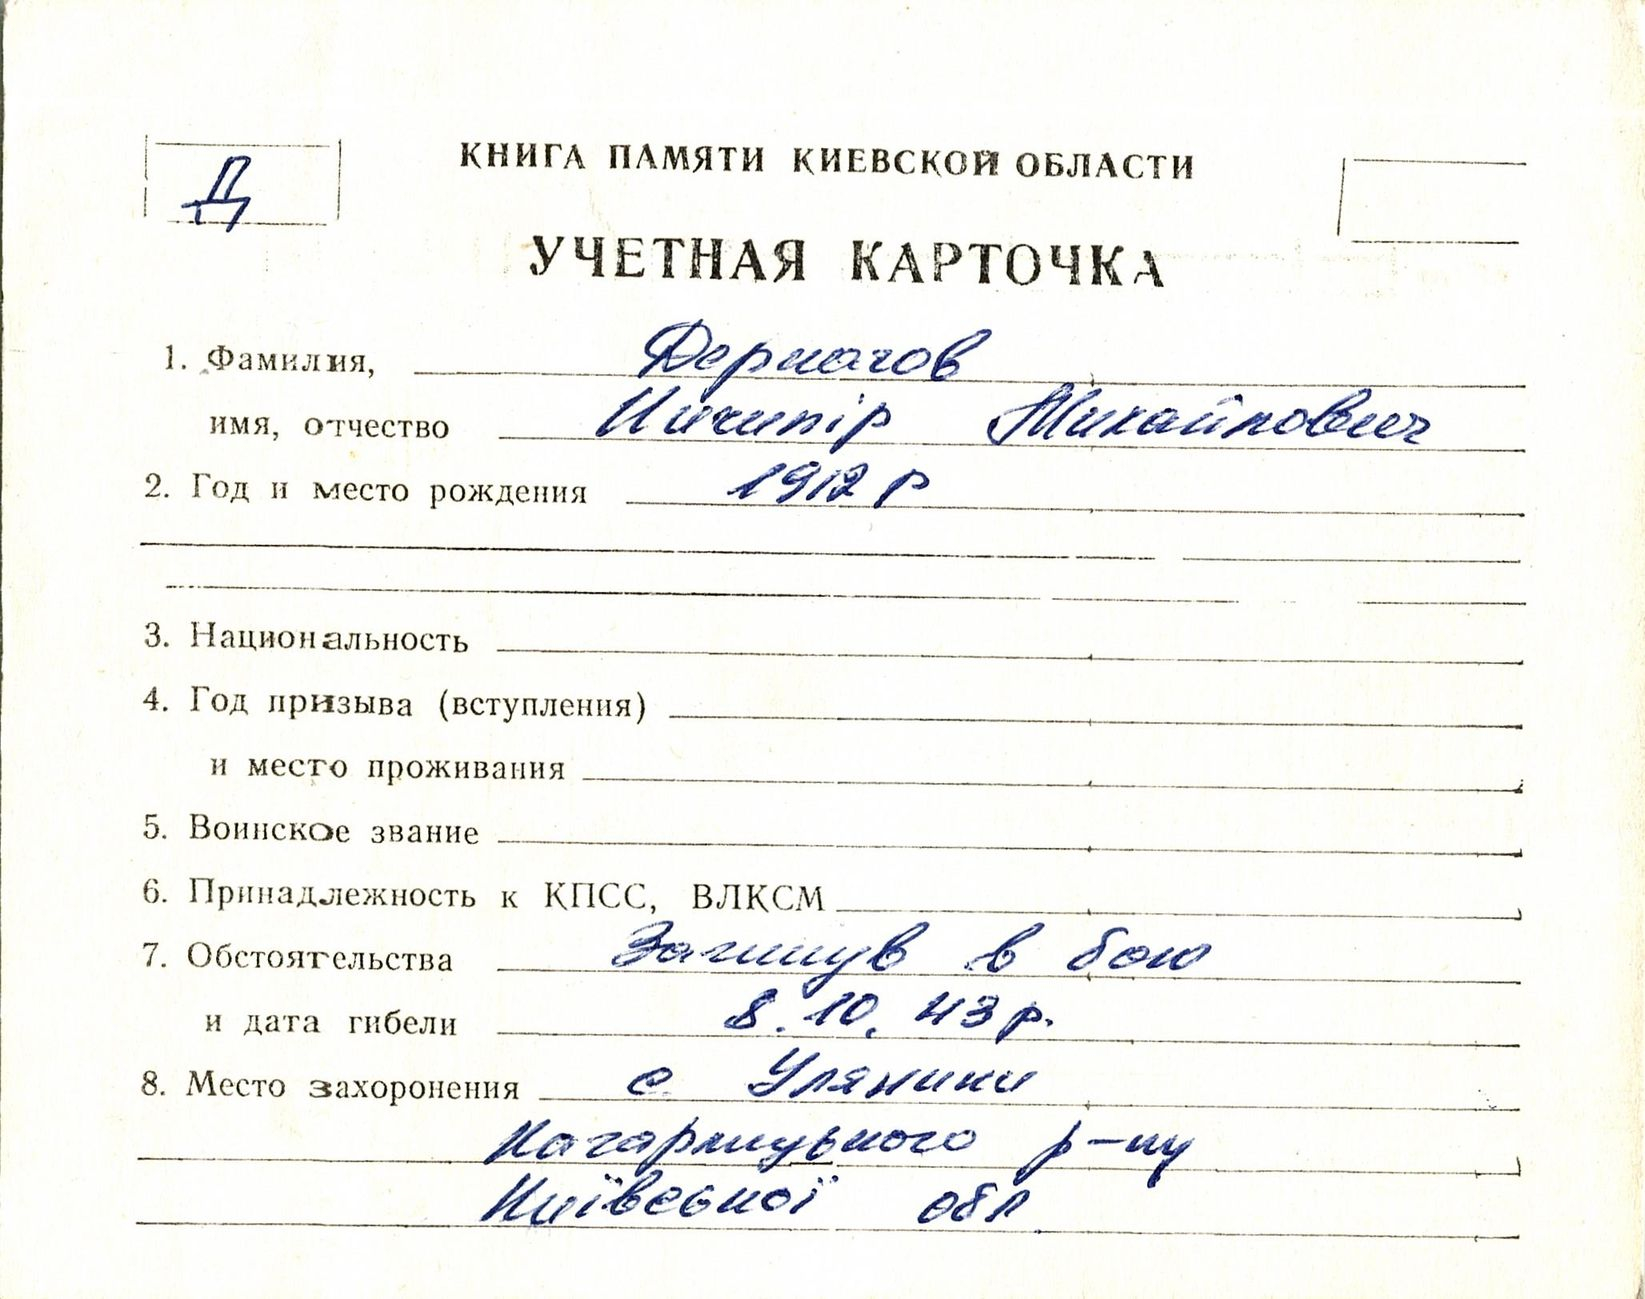 Д
КНИГА ПАМЯТИ КИЕВСКОЙ ОБЛАСТИ
УЧЕТНАЯ КАРТОЧКА
1. Фамилия, Деркачов
имя, отчество Ничипір Михайлович
2. Год и место рождения 1912 р
3. Национальность
4. Год призыва (вступления)
и место проживания
5. Воинское звание
6. Принадлежность к КПСС, ВЛКСМ
7. Обстоятельства Загинув в бою
и дата гибели 8.10.43р.
8. Место захоронения с Уляники
Кагарлицького р-ну
Київської обл